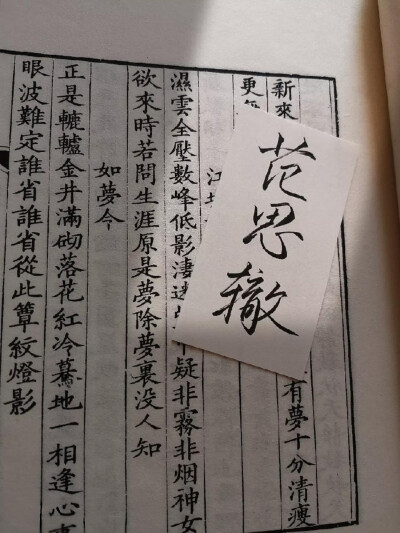 范思辙
新來
有夢十分清瘦
更
江
濕雲全壓數峰低影淒迷
疑非霧非烟神女
欲來時若問生涯原是夢除夢裏没人知
如夢令
正是轆轤金井滿砌落花紅冷驀地一相逢心事
眼波難定誰省誰省從此簟紋燈影